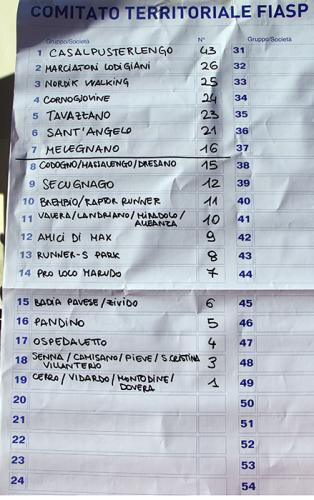 COMITATO TERRITORIALE FIASP
Gruppo/Società N° Gruppo/Società
1 CASALPUSTERLENGO 43 31
2 MARCIATORI LODIGIANI 26 32
3 NORDIK WALKING 25 33
4 CORNOGIOVINE 24 34
5 TAVAZZANO 23 35
6 SANT'ANGELO 21 36
7 MELEGNANO 16 37
8 CODOGNO/MASSALENGO/DRESANO 15 38
9 SECUGNAGO 12 39
10 BREMBIO/RAPTOR RUNNER 11 40
11 VALERA/LANDRIANO/MIRADOLO/ 10 41
12 AMICI DI MAX 9 42
13 RUNNER-S PARK 8 43
14 PRO LOCO MARUDO 7 44
15 BADIA PAVESE/ZIVIDO 6 45
16 PANDINO 5 46
17 OSPEDALETTO 4 47
18 SENNA/CAMISANO/PIEVE/S.CRISTINA 3 48
VILLANTERIO
19 CERRO/VIDARDO/MONTODINE/ 1 49
DOVERA
20 50
21 51
22 52
23 53
24 54